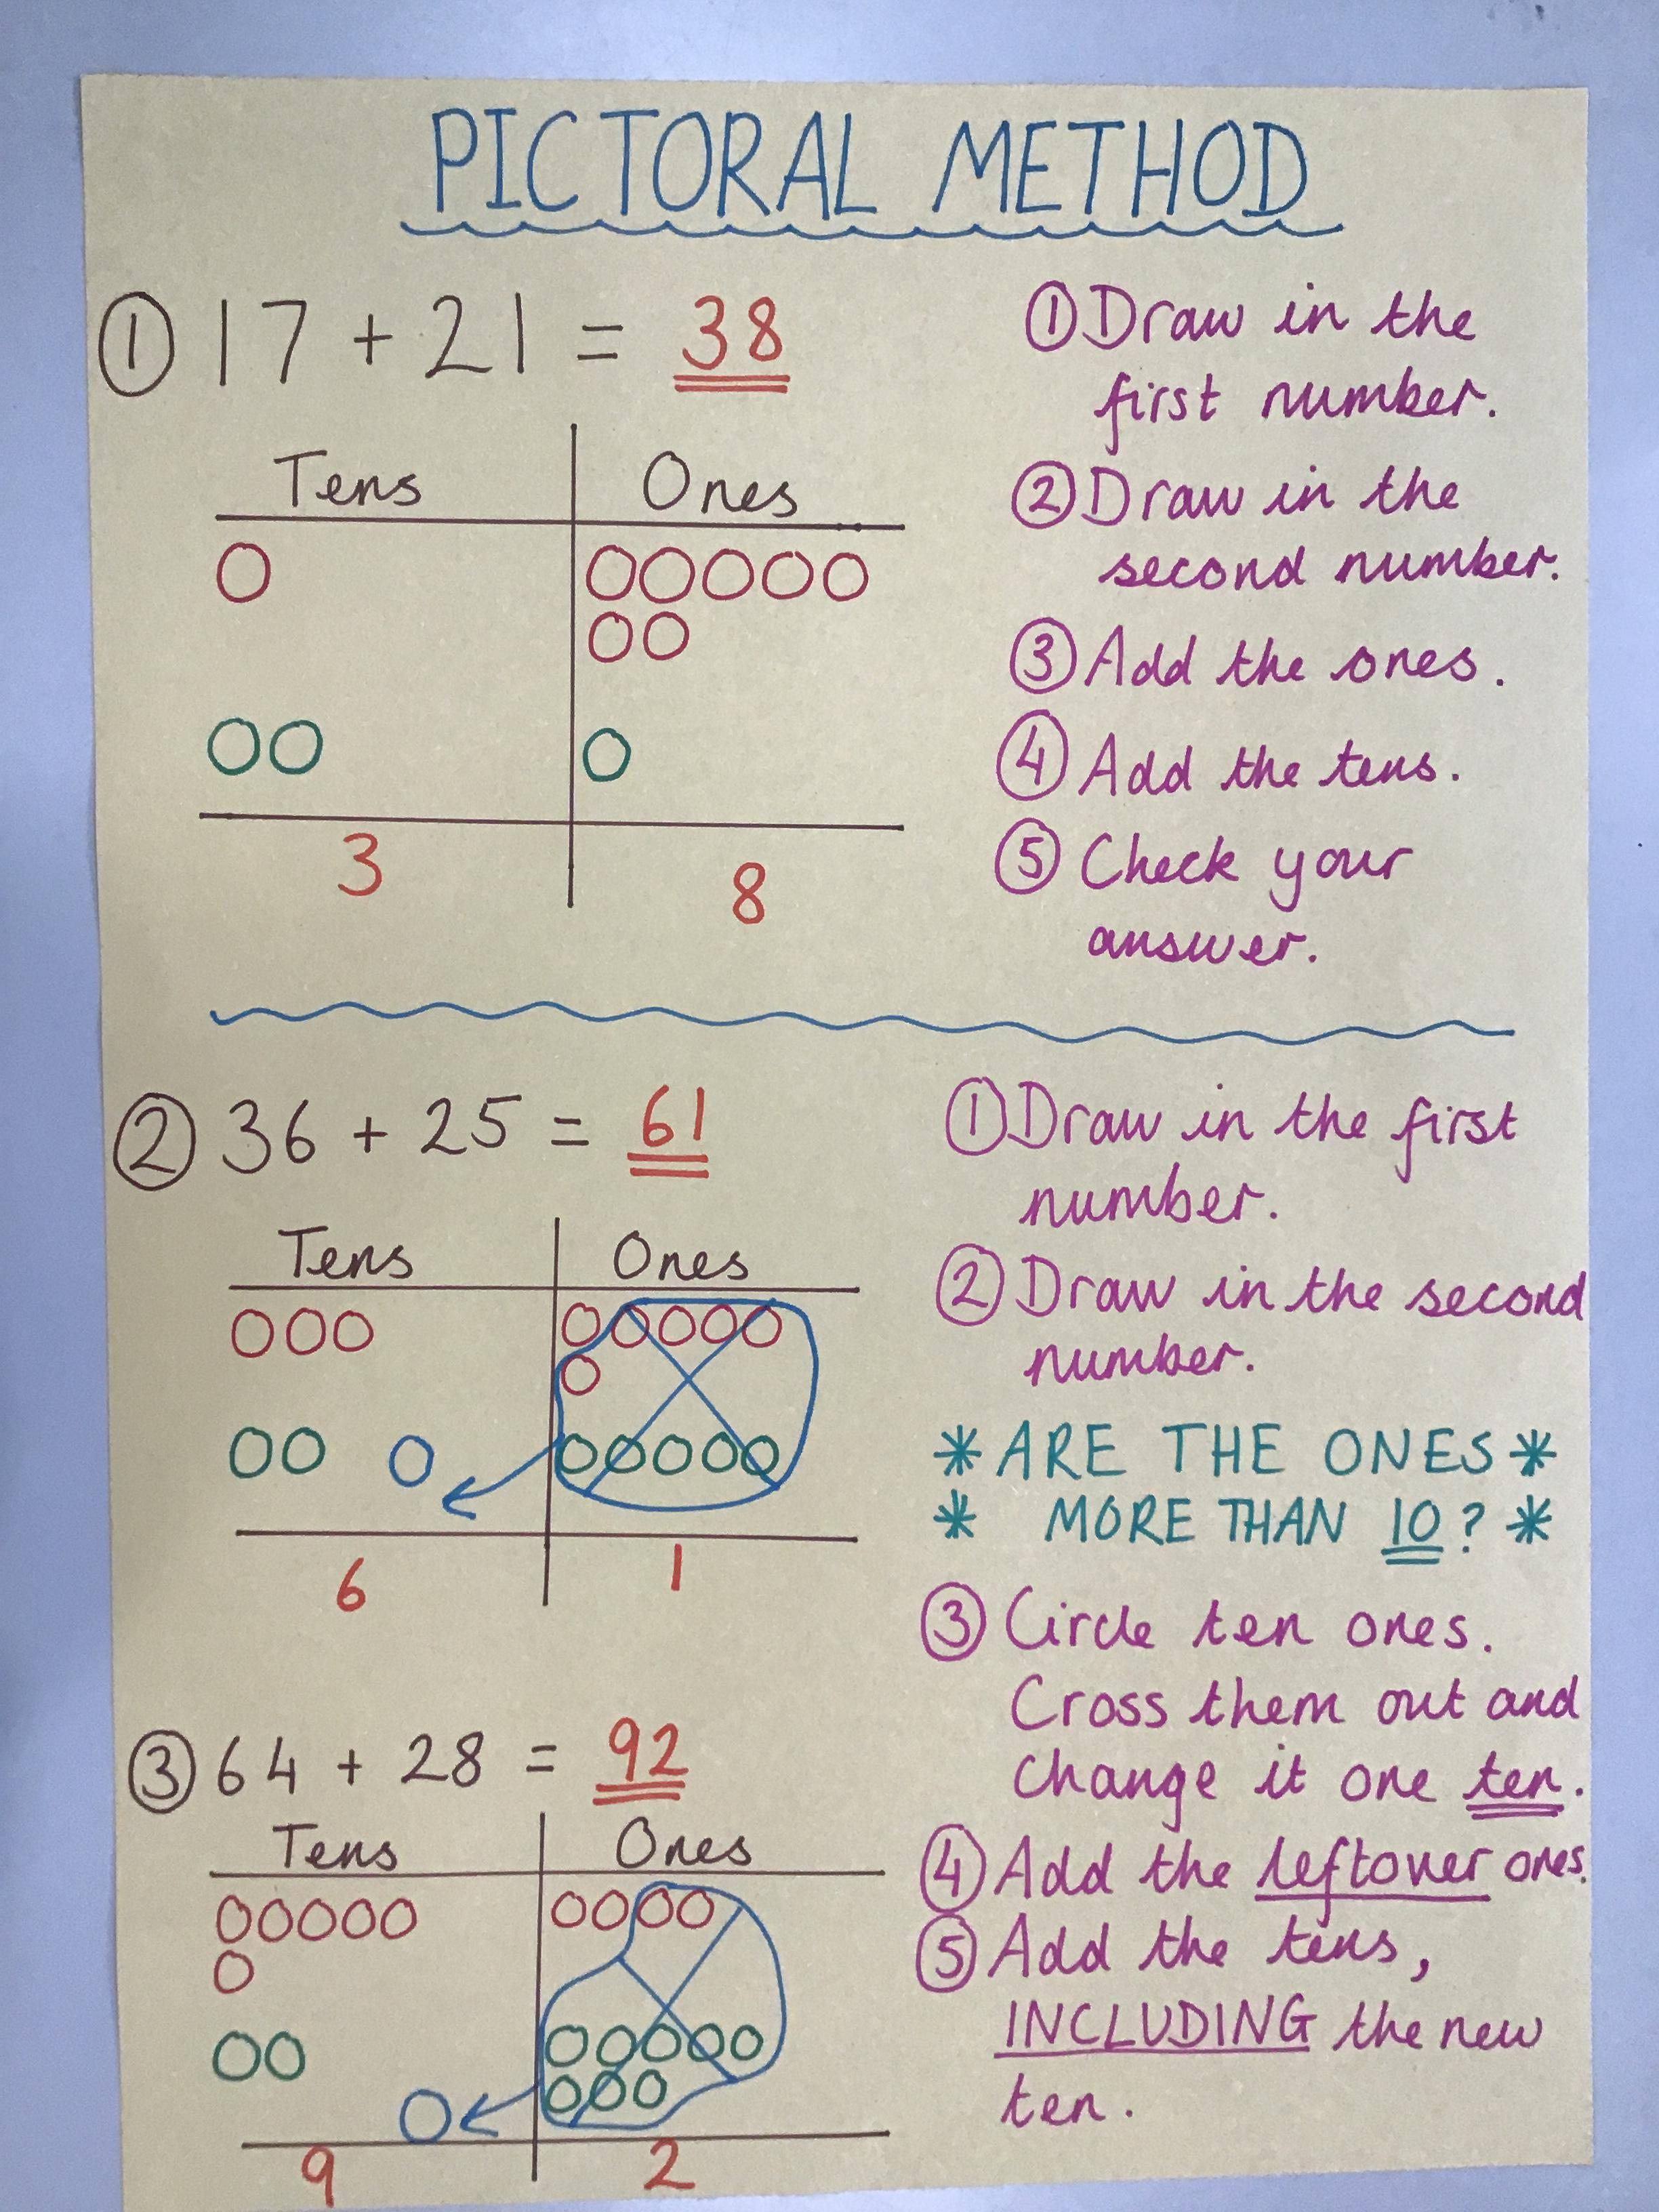 PICTORAL METHOD
① 17 + 21 = 38
Tens Ones
3 8
① Draw in the
first number.
② Draw in the
second number.
③ Add the ones.
④ Add the tens.
⑤ Check your
answer.
② 36 + 25 = 61
Tens Ones
6 1
① Draw in the first
number.
② Draw in the second
number.
* ARE THE ONES *
* MORE THAN 10? *
③ Circle ten ones.
Cross them out and
change it one ten.
④ Add the leftover ones.
⑤ Add the tens,
INCLUDING the new
ten.
③ 64 + 28 = 92
Tens Ones
9 2